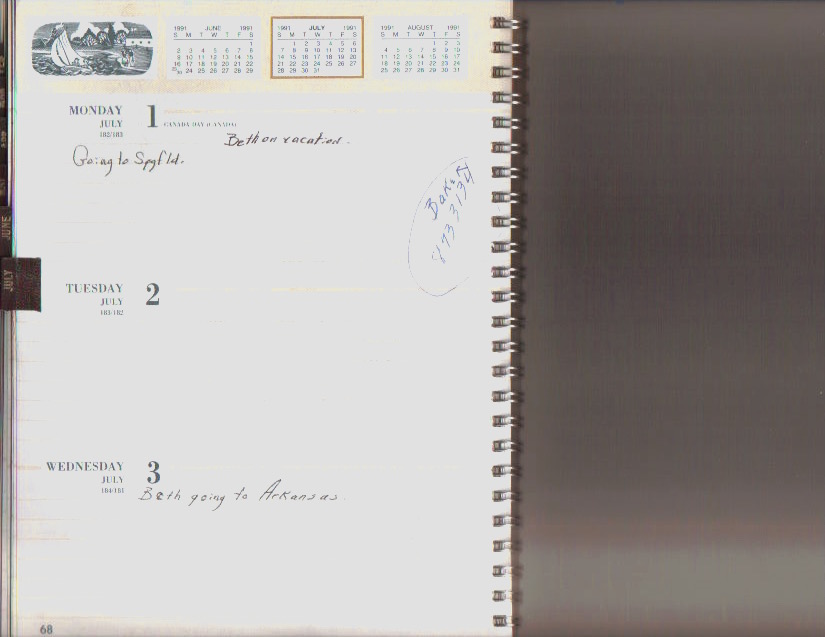 1991 JUNE 1991
S M T W T F S
1
2 3 4 5 6 7 8
9 10 11 12 13 14 15
16 17 18 19 20 21 22
23/30 24 25 26 27 28 29
1991 JULY 1991
S M T W T F S
1 2 3 4 5 6
7 8 9 10 11 12 13
14 15 16 17 18 19 20
21 22 23 24 25 26 27
28 29 30 31
1991 AUGUST 1991
S M T W T F S
1 2 3
4 5 6 7 8 9 10
11 12 13 14 15 16 17
18 19 20 21 22 23 24
25 26 27 28 29 30 31
MONDAY 1
JULY
CANADA DAY (CANADA)
182/183
Beth on vacation.
Going to Spgfld.
Baker
873 3134
JUNE
JULY
TUESDAY 2
JULY
183/182
WEDNESDAY 3
JULY
184/181
Beth going to Arkansas.
68